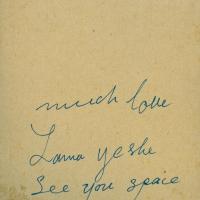 much love
Lama yeshe
See you space